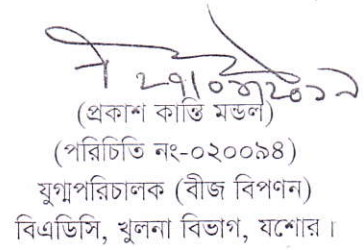 (প্রকাশ কান্তি মন্ডল)
(পরিচিতি নং-০২০০৯৪)
যুগ্মপরিচালক (বীজ বিপণন)
বিএডিসি, খুলনা বিভাগ, যশোর।